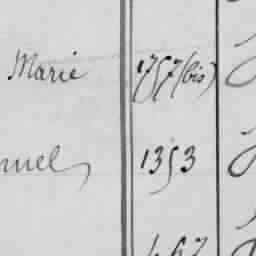 Marie 1757 (bis)
nuel 1353
467